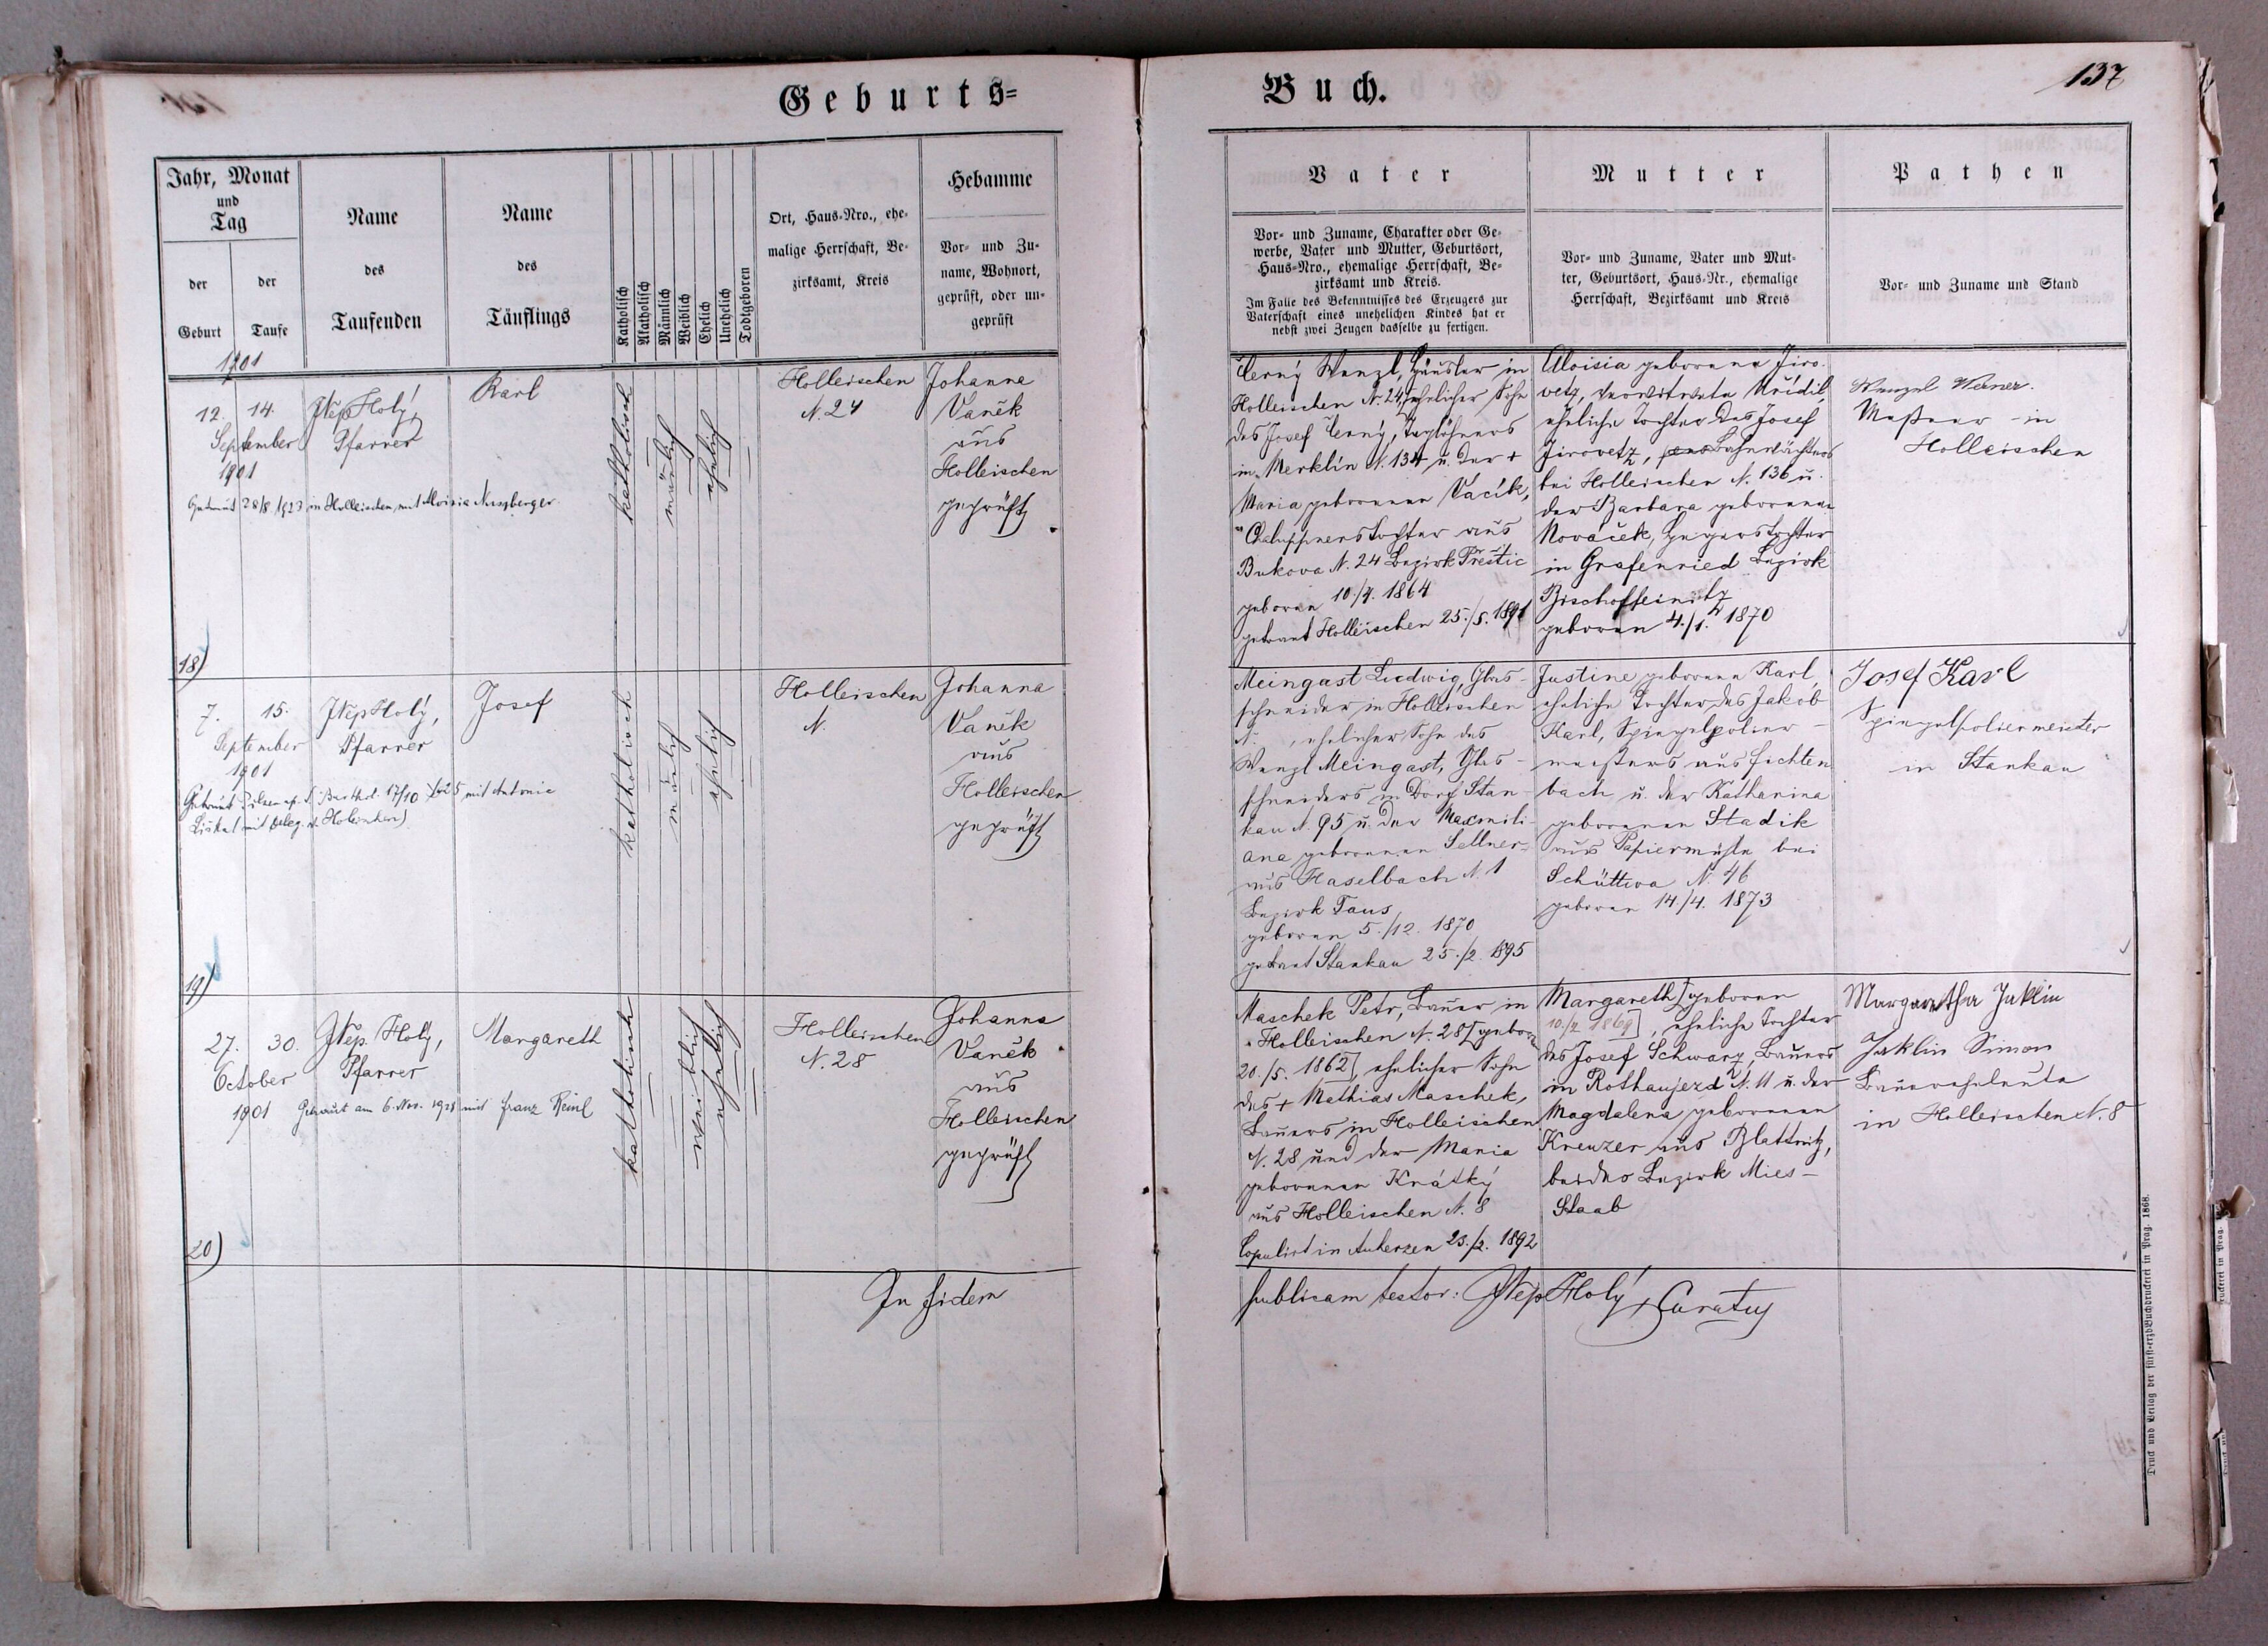 Geburts=
Jahr, Monat
und
Tag
der
Geburt
der
Taufe
Name
des
Taufenden
Name
des
Täuflings
Katholisch
Akatholisch
Männlich
Weiblich
Ehelich
Unehelich
Todtgeboren
Ort, Haus=Nro., ehe=
malige Herrschaft, Be=
zirksamt, Kreis
Hebamme
Vor= und Zu=
name, Wohnort,
geprüft, oder un=
geprüft
1901
12. 14.
September
1901
JNep Holý,
Pfarrer
Karl
katholisch
männlich
ehelich
Holleischen
N. 24
Johanna
Vaněk
aus
Holleischen
geprüft
Getraut 28/8 1923 in Holleischen mit Aloisia Nussberger
18)
7. 15.
September
1901
JNep Holý,
Pfarrer
Josef
katholisch
männlich
ehelich
Holleischen
N.
Johanna
Vaněk
aus
Holleischen
geprüft
Getraut Pilsen ap. S. Barthol. 17/10 1925 mit Antonie
19)
27. 30.
October
1901
JNep. Holý,
Pfarrer
Margareth
katholisch
weiblich
ehelich
Holleischen
N. 28
Johanna
Vaněk
aus
Holleischen
geprüft
Getraut am 6. Nov. 1928 mit Franz Reinl
20)
In fidem
Buch.
137
Vater
Vor= und Zuname, Charakter oder Ge=
werbe, Vater und Mutter, Geburtsort,
Haus=Nro., ehemalige Herrschaft, Be=
zirksamt und Kreis.
Im Falle des Bekenntnisses des Erzeugers zur
Vaterschaft eines unehelichen Kindes hat er
nebst zwei Zeugen dasselbe zu fertigen.
Mutter
Vor= und Zuname, Vater und Mut=
ter, Geburtsort, Haus=Nr., ehemalige
Herrschaft, Bezirksamt und Kreis
Pathen
Vor= und Zuname und Stand
Černý Wenzl, Häusler in
Holleischen N. 24, ehelicher Sohn
des Josef Černý, Taglöhners
in Merklín N. 134 u. der +
Maria geborenen Vacík,
Chaluppnerstochter aus
Bukova N. 24 Bezirk Přeštic
geboren 10./4. 1864
getraut Holleischen 25./5. 1891
Aloisia geborene Jiro-
vetz, verwitwete Křídil,
eheliche Tochter des Josef
Jirovetz, Bahnwächters
bei Holleischen N. 136 u.
der Barbara geborenen
Nováček, Hegerstochter
in Grafenried Bezirk
Bischofteinitz
geboren 4./1. 1870
Wenzel Werner.
Meßner in
Holleischen
Meingast Ludwig, Glas-
schneider in Holleischen
N. , ehelicher Sohn des
Wenzl Meingast, Glas-
schneiders in Dorf Stan-
kau N. 95 u. der Maxmili-
ana geborenen Sellner
aus Haselbach N. 1
Bezirk Taus
geboren 5./12. 1870
getraut Stankau 25./2. 1895
Justine geborene Karl,
eheliche Tochter des Jakob
Karl, Spiegelpolier-
meisters aus Fichten
bach u. der Katharina
geborenen Stadik
aus Papiermühle bei
Schüttwa N. 46
geboren 14./4. 1873
Josef Karl
Spiegelpoliermeister
in Stankau
Maschek Petr, Bauer in
Holleischen N. 28 [geboren
20./5. 1862], ehelicher Sohn
des + Mathias Maschek,
Bauers in Holleischen
N. 28 und der Maria
geborenen Krátký
aus Holleischen N. 8
Copulirt in Auherzen 23./2. 1892
Margareth [geboren
10./7. 1869], eheliche Tochter
des Josef Schwarz, Bauers
in Rothaujezd N. 11 u. der
Magdalena geborenen
Kreuzer aus Blattnitz,
beides Bezirk Mies-
Staab
Margaretha Jaklin
Jaklin Simon
Bauerseheleute
in Holleischen N. 8
publicam testor: JNep Holý, Curatus
Druck und Verlag der fürst=erzb Buchdruckerei in Prag. 1868.